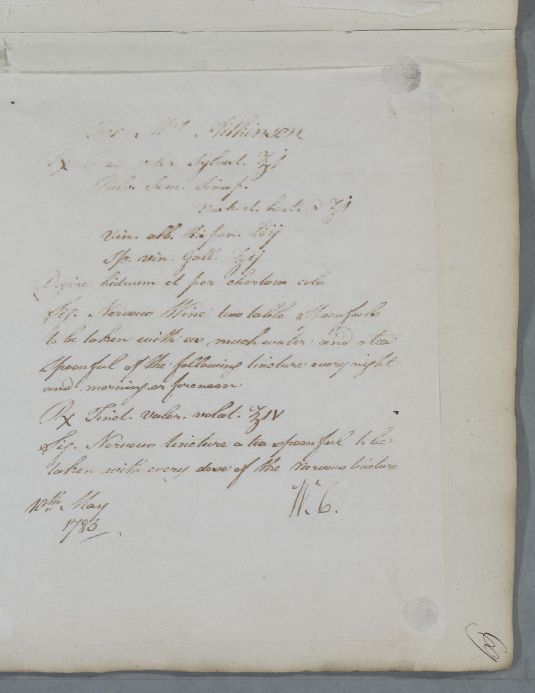 For Mrs Aitkinson
℞ Rad. valer. Sylvest. ℥j
Pulv. Sem. Sinap.
Viah. d. hest. a ʒj
Vin. alb. Hispan. ℔ij
Sp. vin. Gall. ℥ij
biduum et per chartam cola
Sig. Nervous Wine two table Spoonfuls
to be taken with as much water and a tea
Spoonful of the following tincture every night
and morning or forenoon
℞ Tinct. valer. volat. ℥iv
Sig. Nervous tincture a tea spoonful to be
taken with every dose of the nervous tincture
W. C.
10th May
1785